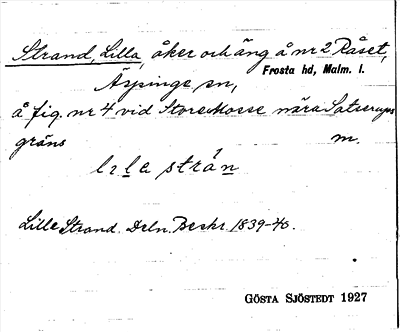 Strand, Lilla, åker och äng å nr 2 Råset,
Frosta hd, Malm. l.
Äspinge sn,
å fig. nr 4 vid Store Mosse nära Satserups
gräns m.
lila strån
Lille Strand. Deln. Beskr. 1839-40.
GÖSTA SJÖSTEDT 1927